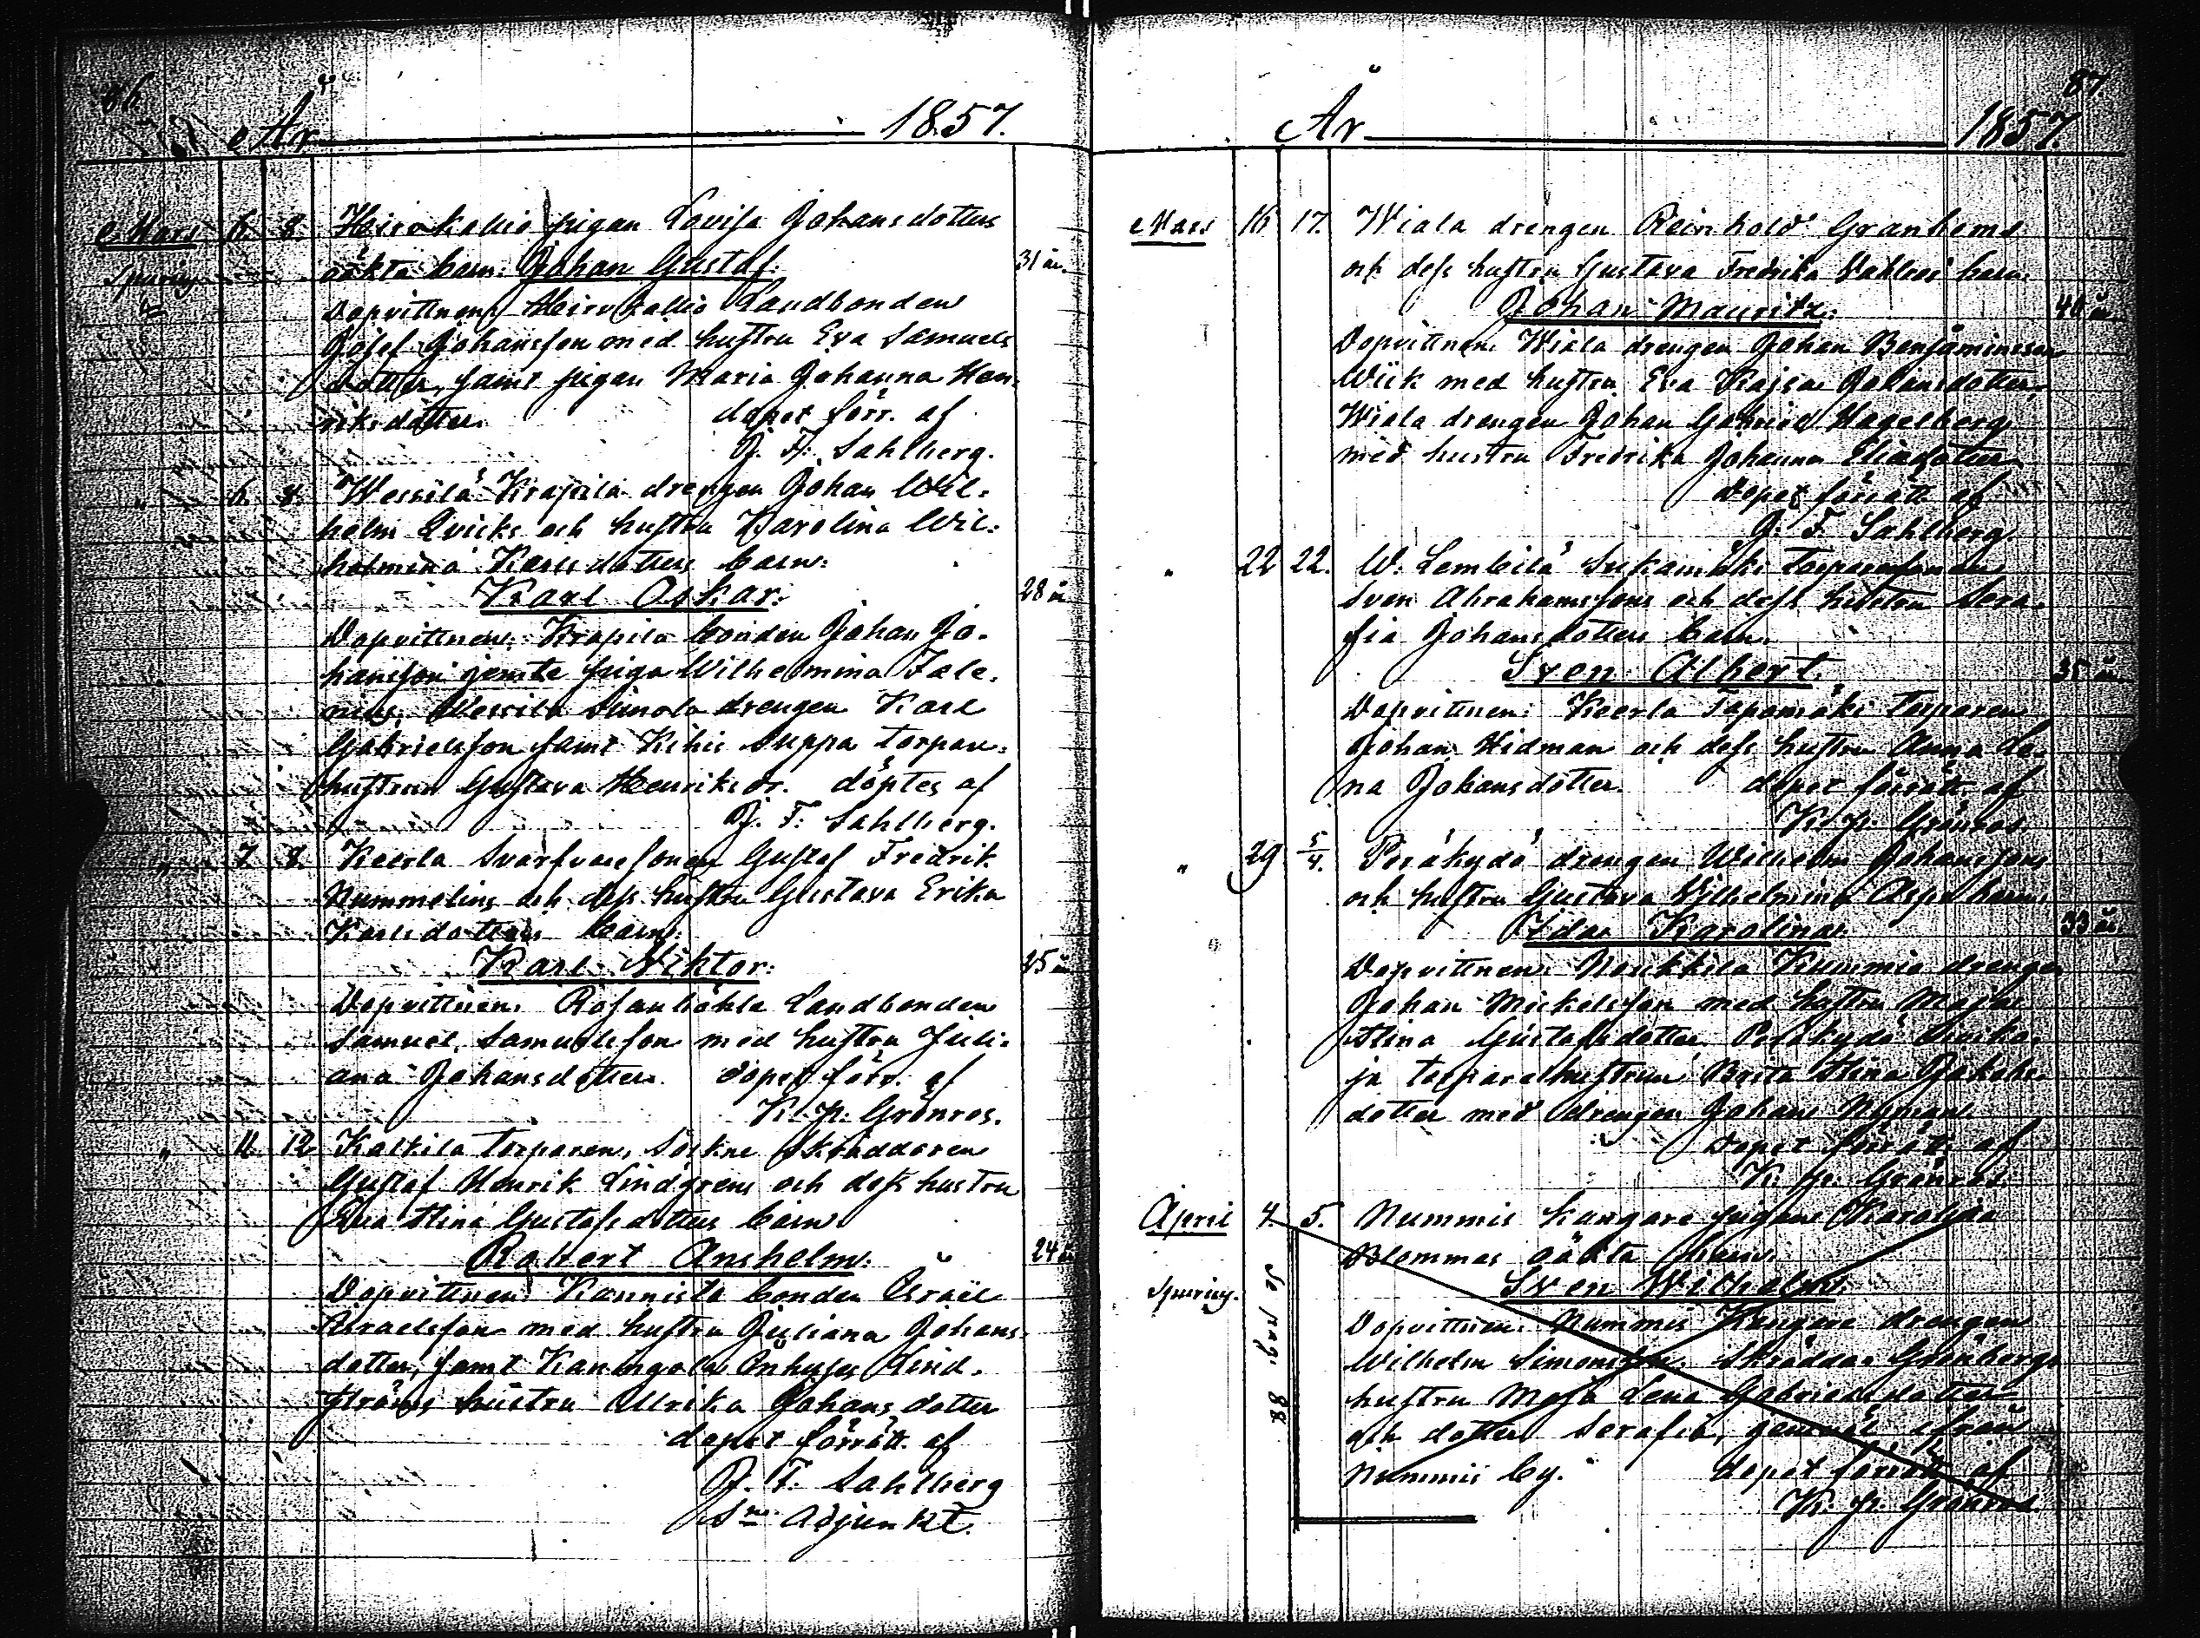 86
År 1857.
Mars 6. 8. Hirvikallio pigan Lovisa Johansdotters
Spuring oäkta barn: Johan Gustaf. 31 år.
Dopvittnen: Hirvikallio Landbonden
Josef Johansson med hustru Eva Samuels
dotter, samt pigan Maria Johanna Hen-
riksdotter. dopet förr. af
J. F. Sahlberg.
" 6. 8. Wessilä Krapila drengen Johan Wil-
helm Qvicks och hustru Karolina Wil-
helmina Karlsdotters barn:
Karl Oskar: 28 år
Dopvittnen: Krapila bonden Johan Jo-
hansson jemte piga Wilhelmina Fale-
nius, Wessilä Simola drengen Karl
Gabrielsson samt Kihis Suppa torpare-
hustrun Gustava Henriksdr. döptes af
J. F. Sahlberg.
" 7. 8. Keerla Svarfvaresonen Gustaf Fredrik
Nummelins och dess hustru Gustava Erika
Karlsdotters barn:
Karl Viktor: 25 år
Dopvittnen: Landbonden
Samuel Samuelsson med hustru Juli-
ana Johansdotter. dopet förr. af
K. p. Grönros.
" 11. 12. Kalkila torparen, Sockne Skräddaren
Gustaf Henrik Lindgrens och dess hustru
Eva Stina Gustafsdotters barn
Robert Anshelm: 24 år
Dopvittnen: Kannisto bonden Israel
Israelsson med hustru Juliana Johans-
dotter, samt Inhyses Lind-
ströms hustru Ulrika Johansdotter
dopet förrätt. af
J. F. Sahlberg
Sn Adjunkt.
87.
År 1857.
Mars 16 17. Wiala drengen Reinhold Granhems
och dess hustru Gustava Fredrika barn:
Johan Mauritz: 40 år
Dopvittnen: Wiala drengen Johan Benjaminsson
Wiik med hustru Eva Kajsa Johansdotter,
Wiala drengen Johan Gabriel Hagelberg
med hustru Fredrika Johanna Eliædotter
Dopet förrätt. af
J. F. Sahlberg.
" 22 22. W. Lembilä
Sven Abrahamssons och dess hustru Sera-
fia Johansdotters barn.
Sven Albert. 35 år
Dopvittnen: Keerla Tapomäki torparen
Johan Widman och dess hustru Anna Le-
na Johansdotter. dopet förrätt. af
K. p. Grönros.
" 29 5/4. Pesäkydö drengen Wilhelm Johanssons
och hustru Gustava Vilhelmina barn:
Ida Karolina: 33 år
Dopvittnen: Noukkila drengen
Johan Mickelsson med hustru Maja
Stina Gustafsdotter, Pesäkydö
torparehustrun Brita Stina Jakobs-
dotter med drengen Johan Nyman
Dopet förrätt. af
K. p. Grönros.
April 4. 5. Nummis Kangare pigan Karolina
Blommas oäkta barn:
Spuring. Sven Wilhelm:
Dopvittnen: Nummis Kangare drengen
Wilhelm Simonsson, Skräddar Grönbergs
hustru Maja Lena Gabrielsdotter
och dotter Serafia, gemensl. ifrån
Nummis by. dopet förrätt. af
K. p. Grönros
Se pag. 88